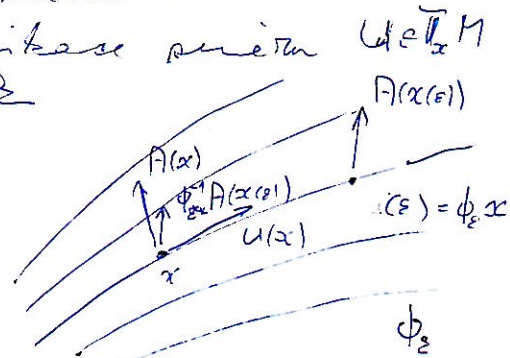 U ∈ T_x M
A(x(ε))
A(x)
ϕ_ε*^{-1} A(x(ε))
(ε) = ϕ_ε x
U(x)
x
ϕ_ε